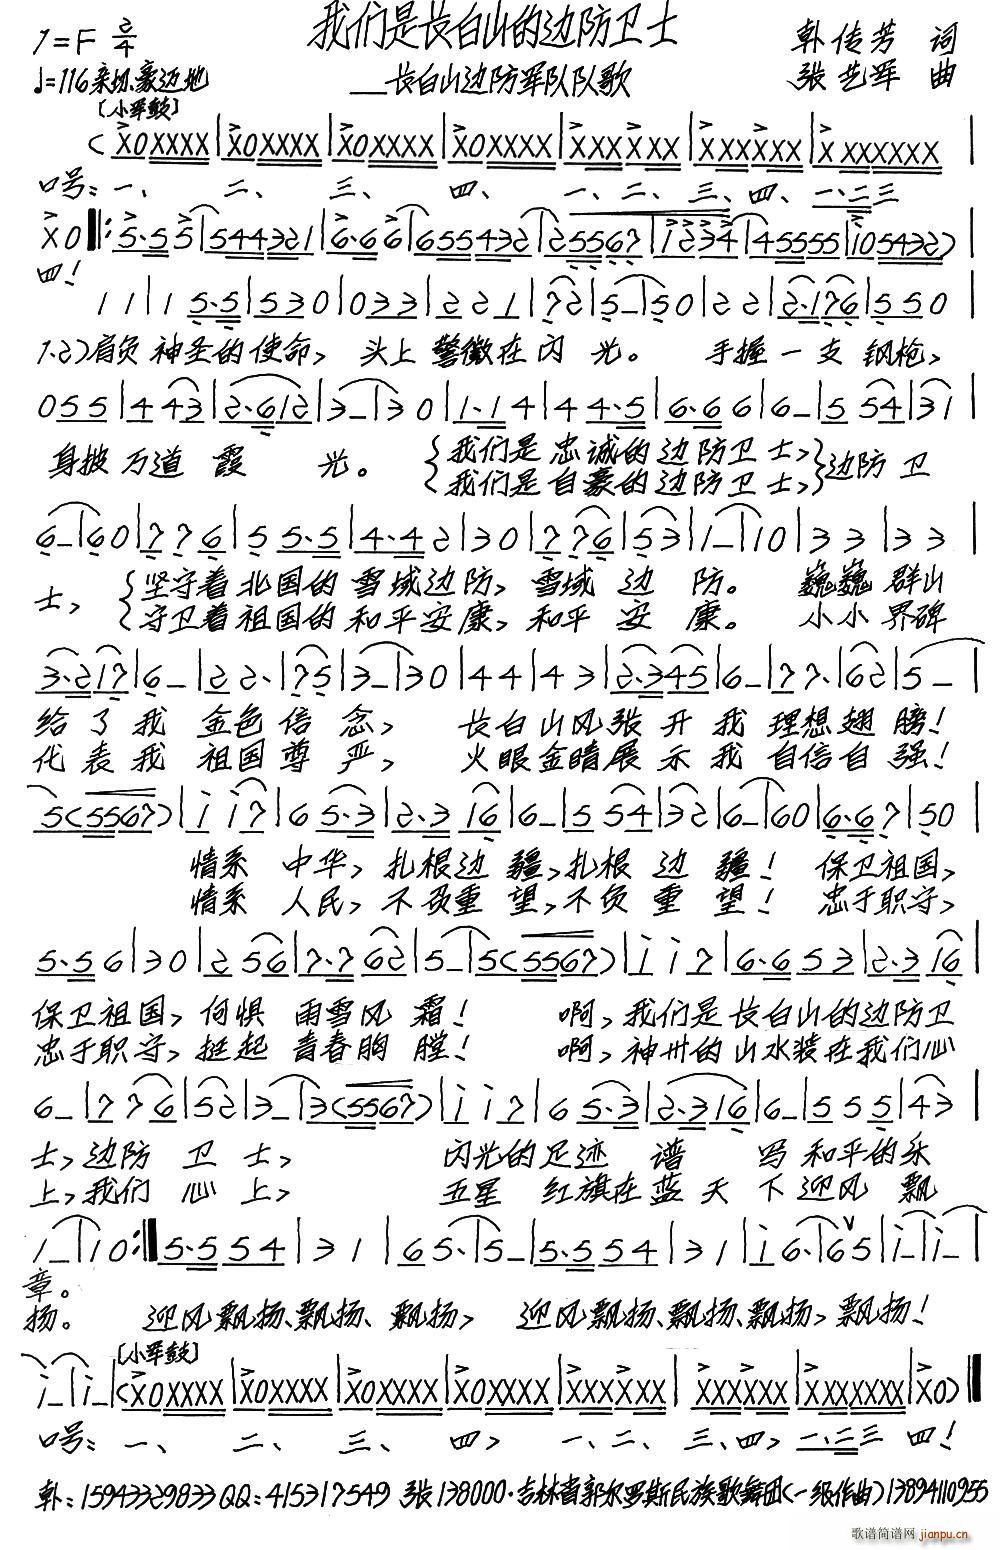 我们是长白山的边防卫士
1=F 2/4
韩传芳 词
♩=116 亲切、豪迈地
——长白山边防军队队歌
张艺军 曲
〔小军鼓〕
(X0XXXX|X0XXXX|X0XXXX|X0XXXX|XXXXXX|XXXXXX|X XXXXXX|
口号：一、 二、 三、 四、 一、二、三、四、一、二三
X0‖:5·5 5|544321|6·6 6|655432|25567|1234|45555|105432)
四！
1 1|1 5·5|530|033|2 2 1|72|5-|50|2 2|2·176|550|
1.2)肩负神圣的使命，头上警徽在闪光。 手握一支钢枪，
055|4 43|2·612|3-|30|1·14|4 4·5|6·66|6-|5 54|31|
身披万道霞光。 {我们是忠诚的边防卫士，}边防卫
{我们是自豪的边防卫士，}
6-|60|7 7 6|5 5·5|4·42|30|7 76|53|1-|10|33|33|
士， {坚守着北国的雪域边防，雪域边防。 巍巍群山
{守卫着祖国的和平安康，和平安康。 小小界碑
3·217|6-|22·|75|3-|30|44|43|2·345|6-|77·|62|5-|
给了我金色信念， 长白山风张开我理想翅膀！
代表我祖国尊严， 火眼金睛展示我自信自强！
5(5567)|i i7|6 5·3|2·3 16|6-|5 54|32|6-|60|6·67|50|
情系中华，扎根边疆，扎根边疆！ 保卫祖国，
情系人民，不负重望，不负重望！ 忠于职守，
5·56|30|2 56|7·7 62|5-|5(5567)|i i7|6·653|2·3 16|
保卫祖国，何惧雨雪风霜！ 啊，我们是长白山的边防卫
忠于职守，挺起青春胸膛！ 啊，神州的山水装在我们心
6-|7 76|52|3-|3(5567)|i i7|6 5·3|2·316|6-|5 5 5|43|
士，边防卫士， 闪光的足迹谱写和平的乐
上，我们心上， 五星红旗在蓝天下迎风飘
1-|10:‖5·554|31|65·|5-|5·554|31|i6·|65|i-|i-|
章。
扬。 迎风飘扬、飘扬、飘扬， 迎风飘扬、飘扬、飘扬，飘扬！
〔小军鼓〕
i-|i-|(X0XXXX|X0XXXX|X0XXXX|X0XXXX|XXXXXX|XXXXXX|XXXXXXX|X0)‖
口号：一、 二、 三、 四， 一、二、三、四，一、二三 四！
韩：15943329833 QQ：415317549 张138000·吉林省郭尔罗斯民族歌舞团(一级作曲)13894110955
歌谱简谱网
jianpu.cn